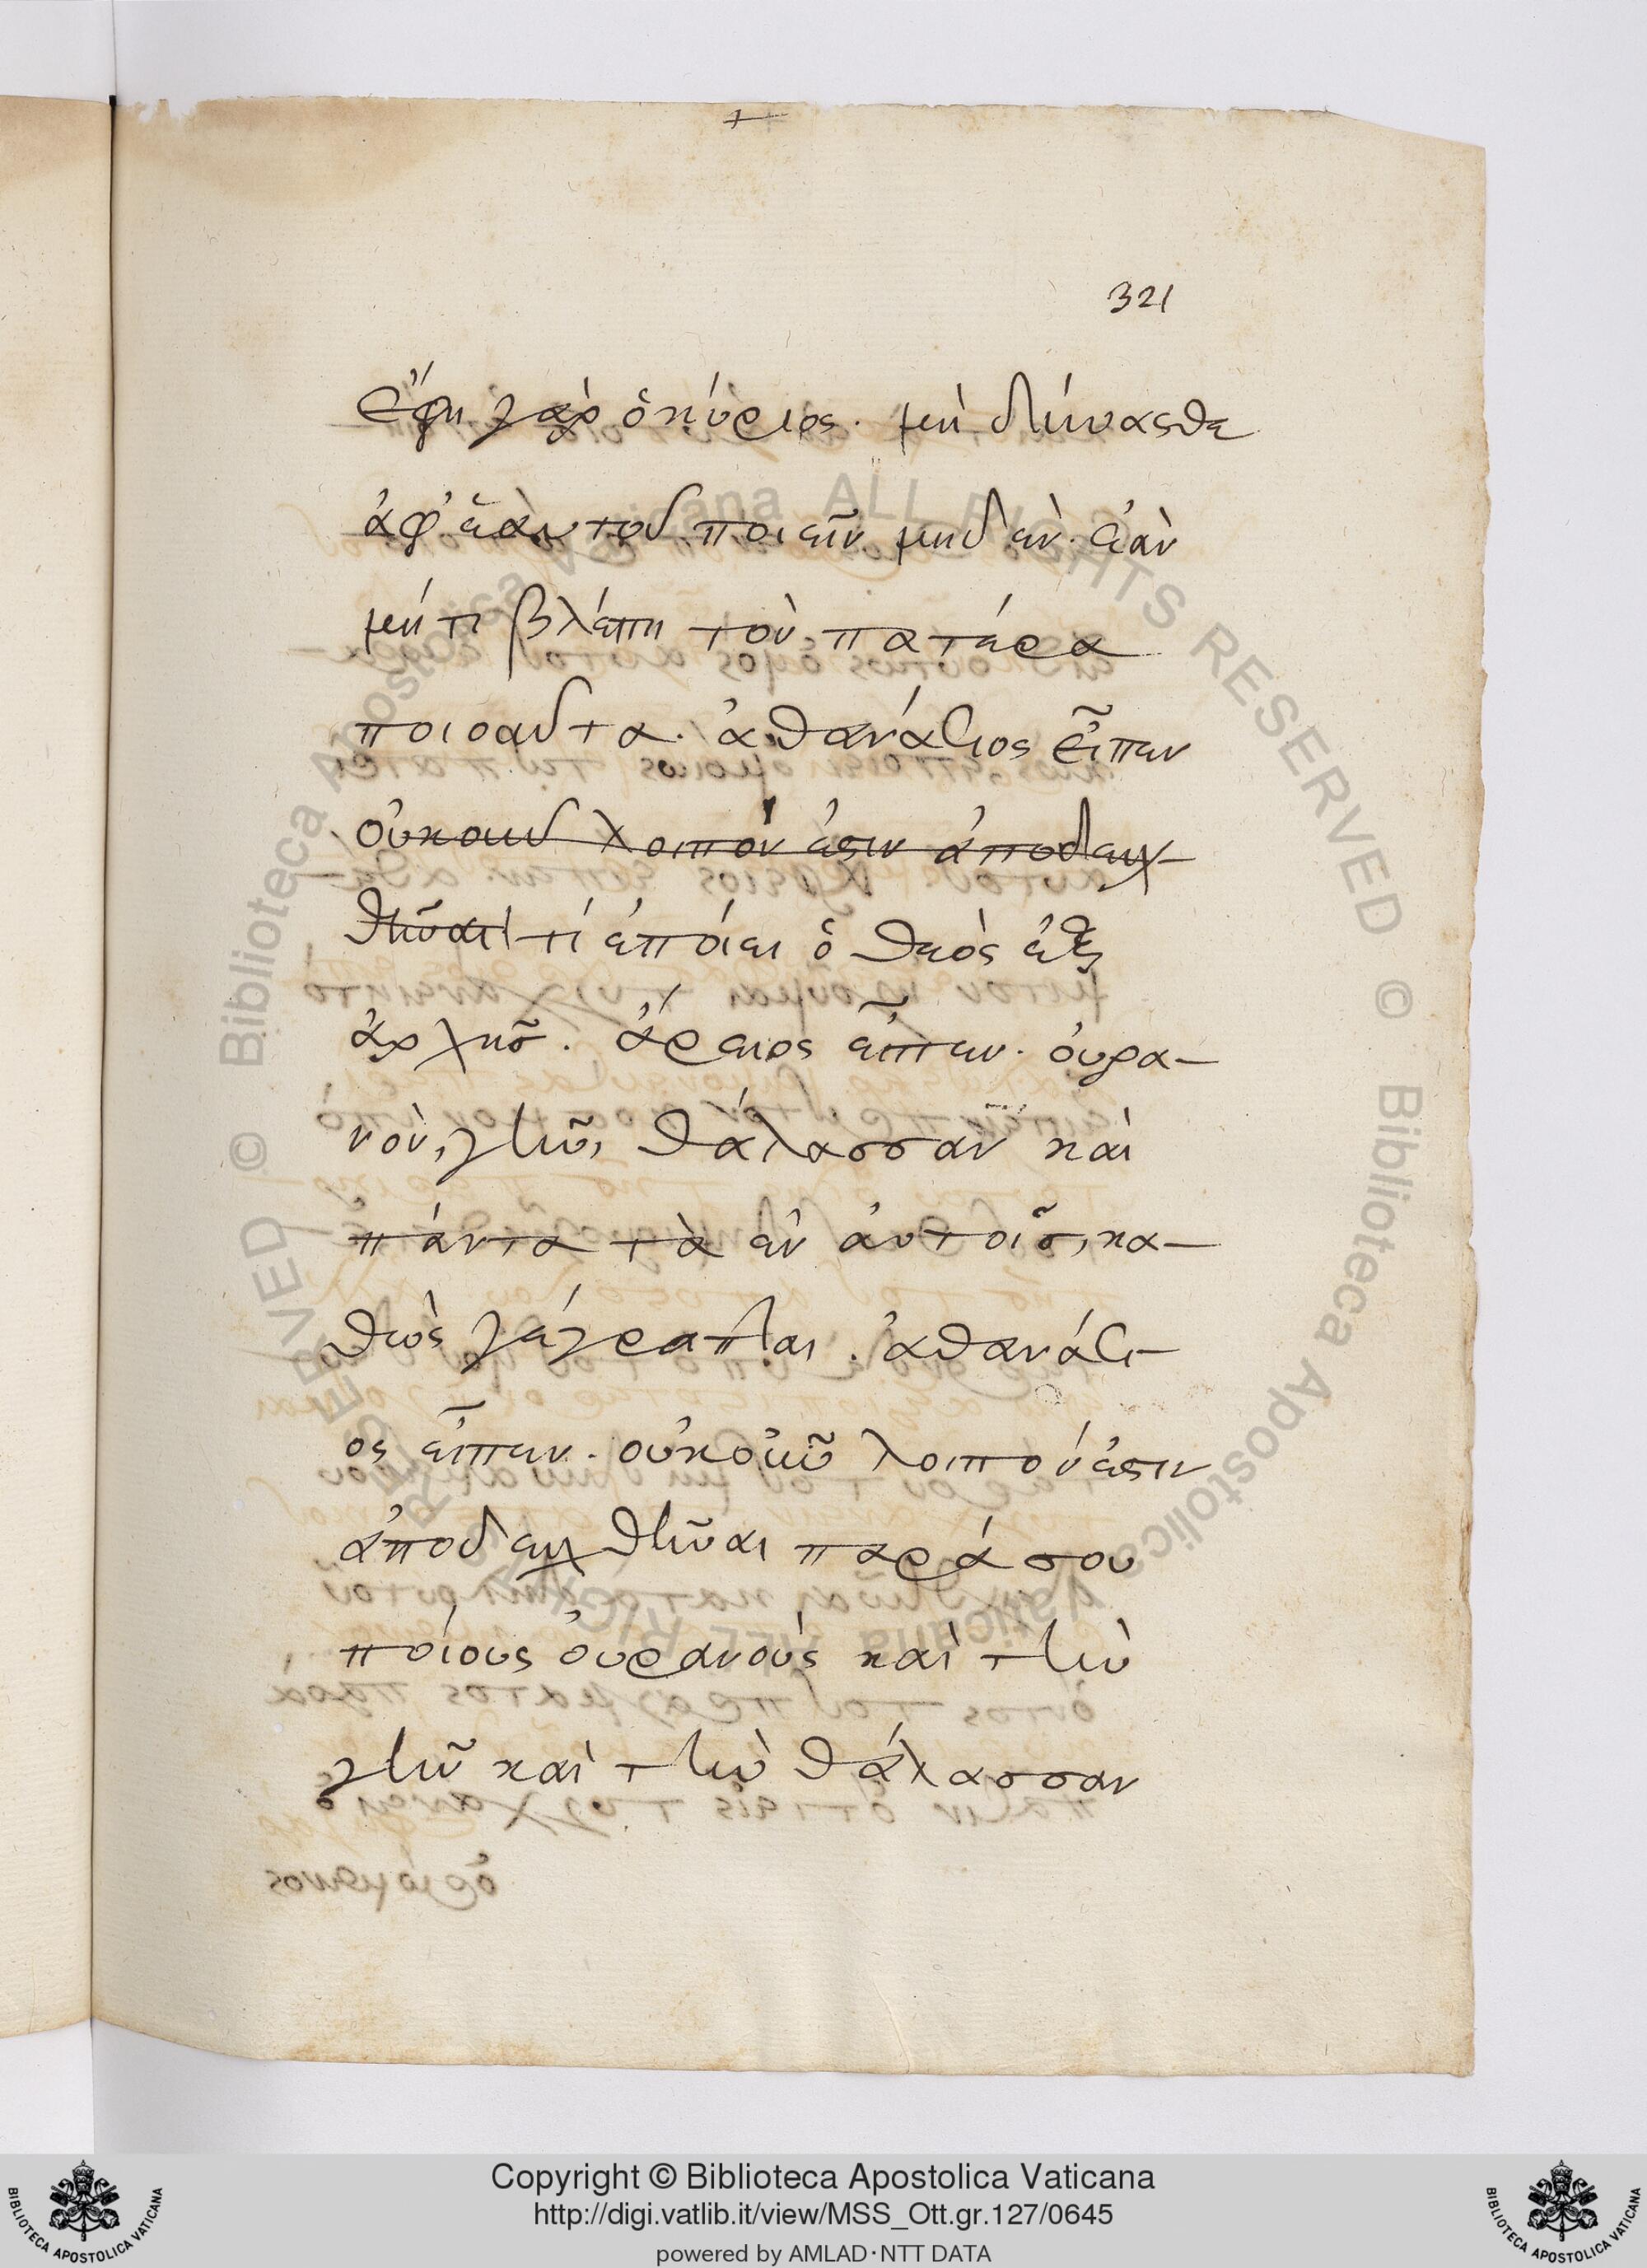 321
Ἔφη γὰρ ὁ κύριος. μὴ δύνασθαι
ἀφ' ἑαυτοῦ ποιεῖν μηδὲν. ἐὰν
μή τι βλέπη τὸν πατέρα
ποιοῦντα. ἀθανάσιος εἶπεν
οὐκοῦν λοιπόν ἐστιν ἀποδειχ-
θῆναι τί ἐποίει ὁ θεὸς ἐξ
ἀρχῆς. ἄρειος εἶπεν. οὐρα-
νὸν, γῆν, θάλασσαν καὶ
πάντα τὰ ἐν αὐτοῖς, κα-
θὼς γέγραπται. ἀθανάσι-
ος εἶπεν. οὐκοῦν λοιπόν ἐστιν
ἀποδειχθῆναι παρά σου
ποίους οὐρανοὺς καὶ τὴν
γῆν καὶ τὴν θάλασσαν
Copyright © Biblioteca Apostolica Vaticana
http://digi.vatlib.it/view/MSS_Ott.gr.127/0645
powered by AMLAD·NTT DATA
BIBLIOTECA APOSTOLICA VATICANA
BIBLIOTECA APOSTOLICA VATICANA